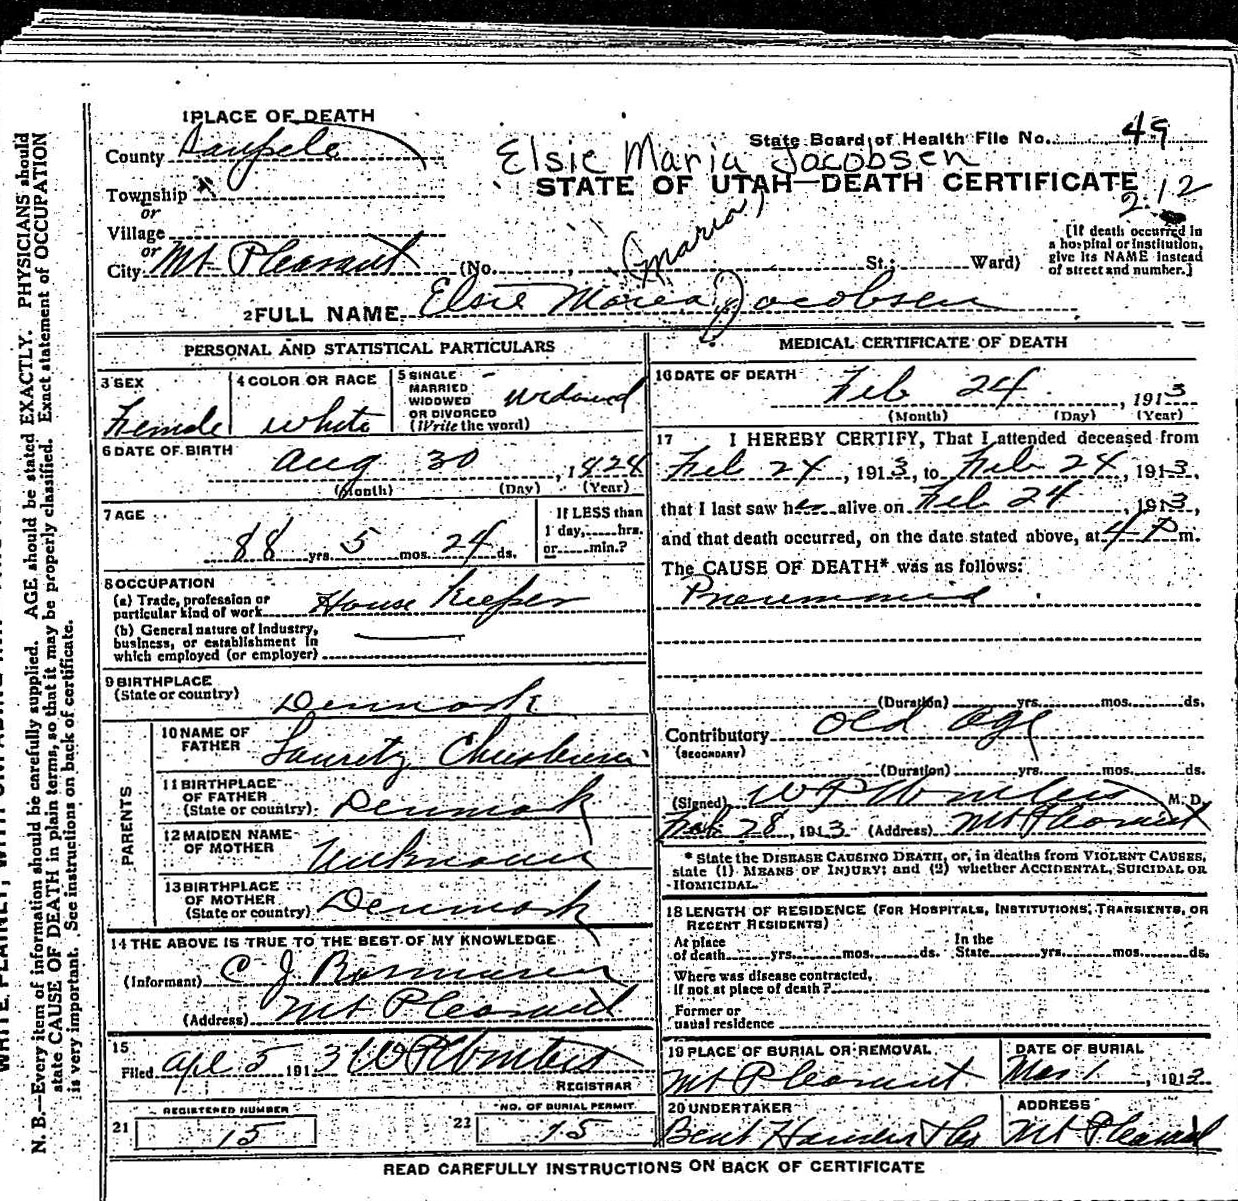 1 PLACE OF DEATH
County Sanpete
State Board of Health File No. 49
Elsie Maria Jacobsen
STATE OF UTAH—DEATH CERTIFICATE
212
Township
or
Village
or
City Mt Pleasant (No. St.; Ward)
[If death occurred in a hospital or institution, give its NAME instead of street and number.]
(Maria)
2 FULL NAME Elsie Marea Jacobsen
PERSONAL AND STATISTICAL PARTICULARS
3 SEX
Female
4 COLOR OR RACE
White
5 SINGLE MARRIED WIDOWED OR DIVORCED (Write the word)
Widowed
6 DATE OF BIRTH
Aug 30, 1824
(Month) (Day) (Year)
7 AGE
88 yrs. 5 mos. 24 ds.
If LESS than 1 day, hrs. or min.?
8 OCCUPATION
(a) Trade, profession or particular kind of work House Keeper
(b) General nature of industry, business, or establishment in which employed (or employer)
9 BIRTHPLACE
(State or country) Denmark
PARENTS
10 NAME OF FATHER Lauretz
11 BIRTHPLACE OF FATHER (State or country) Denmark
12 MAIDEN NAME OF MOTHER Unknown
13 BIRTHPLACE OF MOTHER (State or country) Denmark
14 THE ABOVE IS TRUE TO THE BEST OF MY KNOWLEDGE
(Informant) C J Rasmussen
(Address) Mt Pleasant
15
Filed Apl 5 1913 W P
REGISTRAR
REGISTERED NUMBER
21 15
NO. OF BURIAL PERMIT
22 15
MEDICAL CERTIFICATE OF DEATH
16 DATE OF DEATH
Feb 24, 1913
(Month) (Day) (Year)
17 I HEREBY CERTIFY, That I attended deceased from
Feb 24, 1913, to Feb 24, 1913,
that I last saw her alive on Feb 24, 1913,
and that death occurred, on the date stated above, at 4 P m.
The CAUSE OF DEATH* was as follows:
Pneumonia
(Duration) yrs. mos. ds.
Contributory old age
(SECONDARY)
(Duration) yrs. mos. ds.
(Signed) W P M. D.
Feb 28, 1913 (Address) Mt Pleasant
* State the DISEASE CAUSING DEATH, or, in deaths from VIOLENT CAUSES,
state (1) MEANS OF INJURY; and (2) whether ACCIDENTAL, SUICIDAL OR
HOMICIDAL.
18 LENGTH OF RESIDENCE (FOR HOSPITALS, INSTITUTIONS, TRANSIENTS, OR
RECENT RESIDENTS)
At place of death yrs. mos. ds. In the State yrs. mos. ds.
Where was disease contracted,
If not at place of death?
Former or
usual residence
19 PLACE OF BURIAL OR REMOVAL
Mt Pleasant
DATE OF BURIAL
Mar 1, 1913
20 UNDERTAKER
Bent Hansen & Co
ADDRESS
Mt Pleasant
READ CAREFULLY INSTRUCTIONS ON BACK OF CERTIFICATE
N. B.—Every item of information should be carefully supplied. AGE should be stated EXACTLY. PHYSICIANS should
state CAUSE OF DEATH in plain terms, so that it may be properly classified. Exact statement of OCCUPATION
is very important. See instructions on back of certificate.